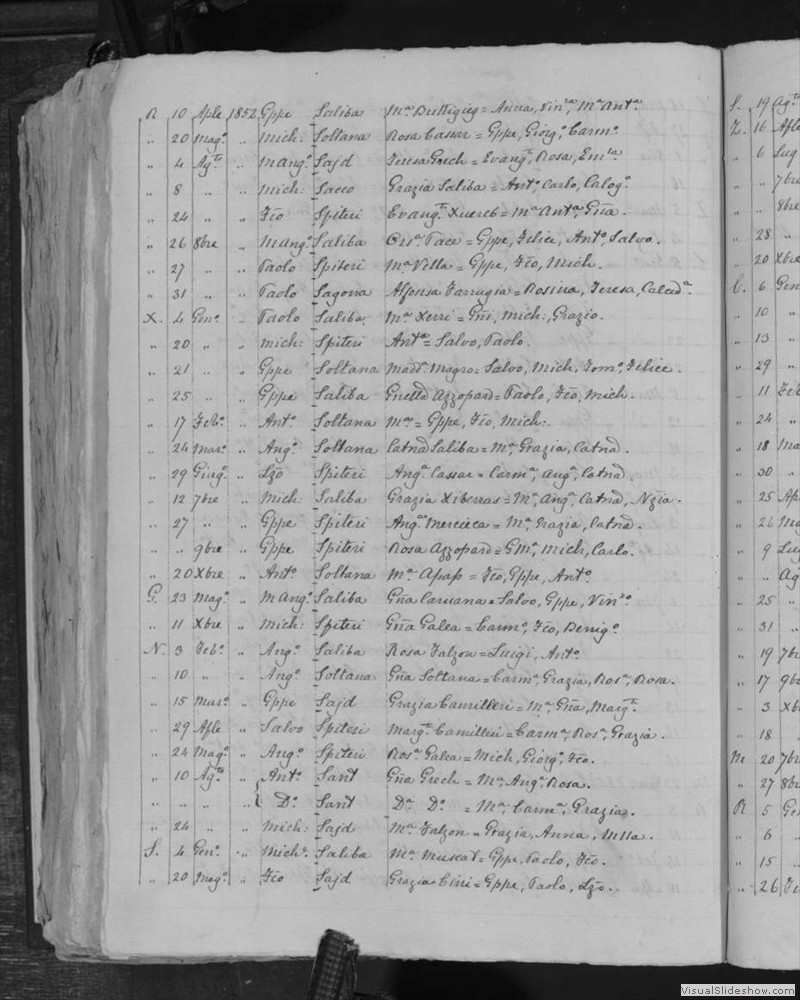 R 10 Aple 1852 Gppe Saliba Mª Buttigieg = Anna, Vinzª, Mª Antª.
" 20 Magº " Mich: Soltana Rosa Cassar = Gppe, Giorgº, Carmº.
" 4 Agto " M Angº Sajd Teresa Grech = Evangta, Rosa, Emlª.
" 8 " " Mich: Sacco Grazia Saliba = Antº, Carlo, Calogº.
" 24 " " Fco Spiteri Evangta Xuereb = Mª Antª, Gña.
" 26 8bre " M Angº Saliba Crisª Pace = Gppe, Felice, Antº, Salvo.
" 27 " " Paolo Spiteri Mª Vella = Gppe, Fco, Mich.
" 31 " " Paolo Sagona Alfonsa Farrugia = Rosina, Teresa, Calcedª.
X. 4 Genº " Paolo Saliba Mª Xerri = Gñi, Mich:, Grazio.
" 20 " " Mich: Spiteri Antª = Salvo, Paolo.
" 21 " " Gppe Soltana Maddª Magro = Salvo, Mich, Tomº, Felice.
" 25 " " Gppe Saliba Gnetta Azzopard = Paolo, Fco, Mich.
" 17 Febº " Antº Soltana Mª = Gppe, Fco, Mich:
" 24 Marº " Angº Soltana Catnª Saliba = Mª, Grazia, Catnª.
" 29 Giugº " Lzo Spiteri Angª Cassar = Carmª, Augª, Catnª.
" 12 7bre " Mich: Saliba Grazia Xiberras = Mª, Angª, Catnª, Nzia.
" 27 " " Gppe Spiteri Angª Mercieca = Mª, Grazia, Catnª.
" " 9bre " Gppe Spiteri Rosa Azzopard = GMª, Mich, Carlo.
" 20 Xbre " Antº Soltana Mª Apap = Fco, Gppe, Antº.
G. 23 Magº " M Angº Saliba Gña Caruana = Salvo, Gppe, Vinzº.
" 11 Xbre " Mich: Spiteri Gña Galea = Carmº, Fco, Benigº.
N. 3 Febº " Angº Saliba Rosa Falzon = Luigi, Antº.
" 10 " " Angº Soltana Gña Soltana = Carmª, Grazia, Rosª, Rosa.
" 15 Marº " Gppe Sajd Grazia Camilleri = Mª, Gña, Margta.
" 29 Aple " Salvo Spiteri Margta Camilleri = Carmª, Rosª, Grazia.
" 24 Magº " Angº Spiteri Rosª Galea = Mich, Giorgº, Fco.
" 10 Agto " Antº Sant Gña Grech = Mª, Angª, Rosa.
" " " " Dº Sant Dª Dº = Mª, Carmª, Grazia.
" 24 " " Mich: Sajd Mª Falzon = Grazia, Anna, Ulla.
S. 4 Genº " Michº Saliba Mª Muscat = Gppe, Paolo, Fco.
" 20 Magº " Fco Sajd Grazia Cini = Gppe, Paolo, Lzo.
S. 19 Agto
Z. 16 Aple
" 6 Lug
" " 7bre
" " 8bre
" 28 "
" 20 Xbre
C. 6 Gen
" 10 "
" 13 "
" 29 "
" 11 Feb
" 24 "
" 18 Ma
" 30 "
" 25 Ap
" 26 Ma
" 9 Lug
" " Ag
" 25 "
" 31 "
" 19 7br
" 17 9br
" 3 Xb
" 18 "
M 20 7br
" 27 8br
R 5 Ge
" 6 "
" 15 "
" 26
VisualSlideshow.com